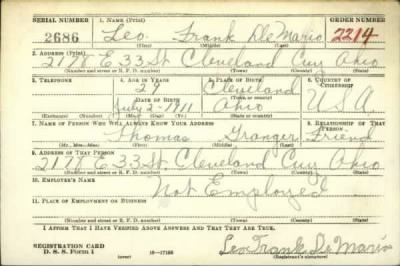 SERIAL NUMBER 1. NAME (Print) ORDER NUMBER
2686 Leo Frank DeMario 2214
(First) (Middle) (Last)
2. ADDRESS (Print)
2178 E 33 St. Cleveland Cuy Ohio
(Number and street or R. F. D. number) (Town) (County) (State)
3. TELEPHONE 4. AGE IN YEARS 5. PLACE OF BIRTH 6. COUNTRY OF CITIZENSHIP
29 Cleveland
DATE OF BIRTH (Town or county)
July 2-1911 Ohio U.S.A
(Exchange) (Number) (Mo.) (Day) (Yr.) (State or country)
7. NAME OF PERSON WHO WILL ALWAYS KNOW YOUR ADDRESS 8. RELATIONSHIP OF THAT PERSON
Thomas Granger Friend
(Mr., Mrs., Miss) (First) (Middle) (Last)
9. ADDRESS OF THAT PERSON
2178 E 33 St. Cleveland Cuy Ohio
(Number and street or R. F. D. number) (Town) (County) (State)
10. EMPLOYER'S NAME
Not Employed
11. PLACE OF EMPLOYMENT OR BUSINESS
(Number and street or R. F. D. number) (Town) (County) (State)
I AFFIRM THAT I HAVE VERIFIED ABOVE ANSWERS AND THAT THEY ARE TRUE.
REGISTRATION CARD
D. S. S. Form 1 16—17105 Leo Frank DeMario
(Registrant's signature)